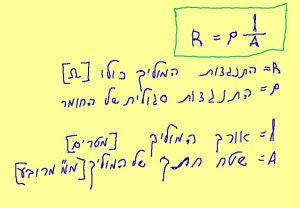 R = ρ l/A
R = התנגדות המוליך כולו [Ω]
ρ = התנגדות סגולית של החומר
l = אורך המוליך [מטרים]
A = שטח חתך של המוליך [ממ״מרובע]